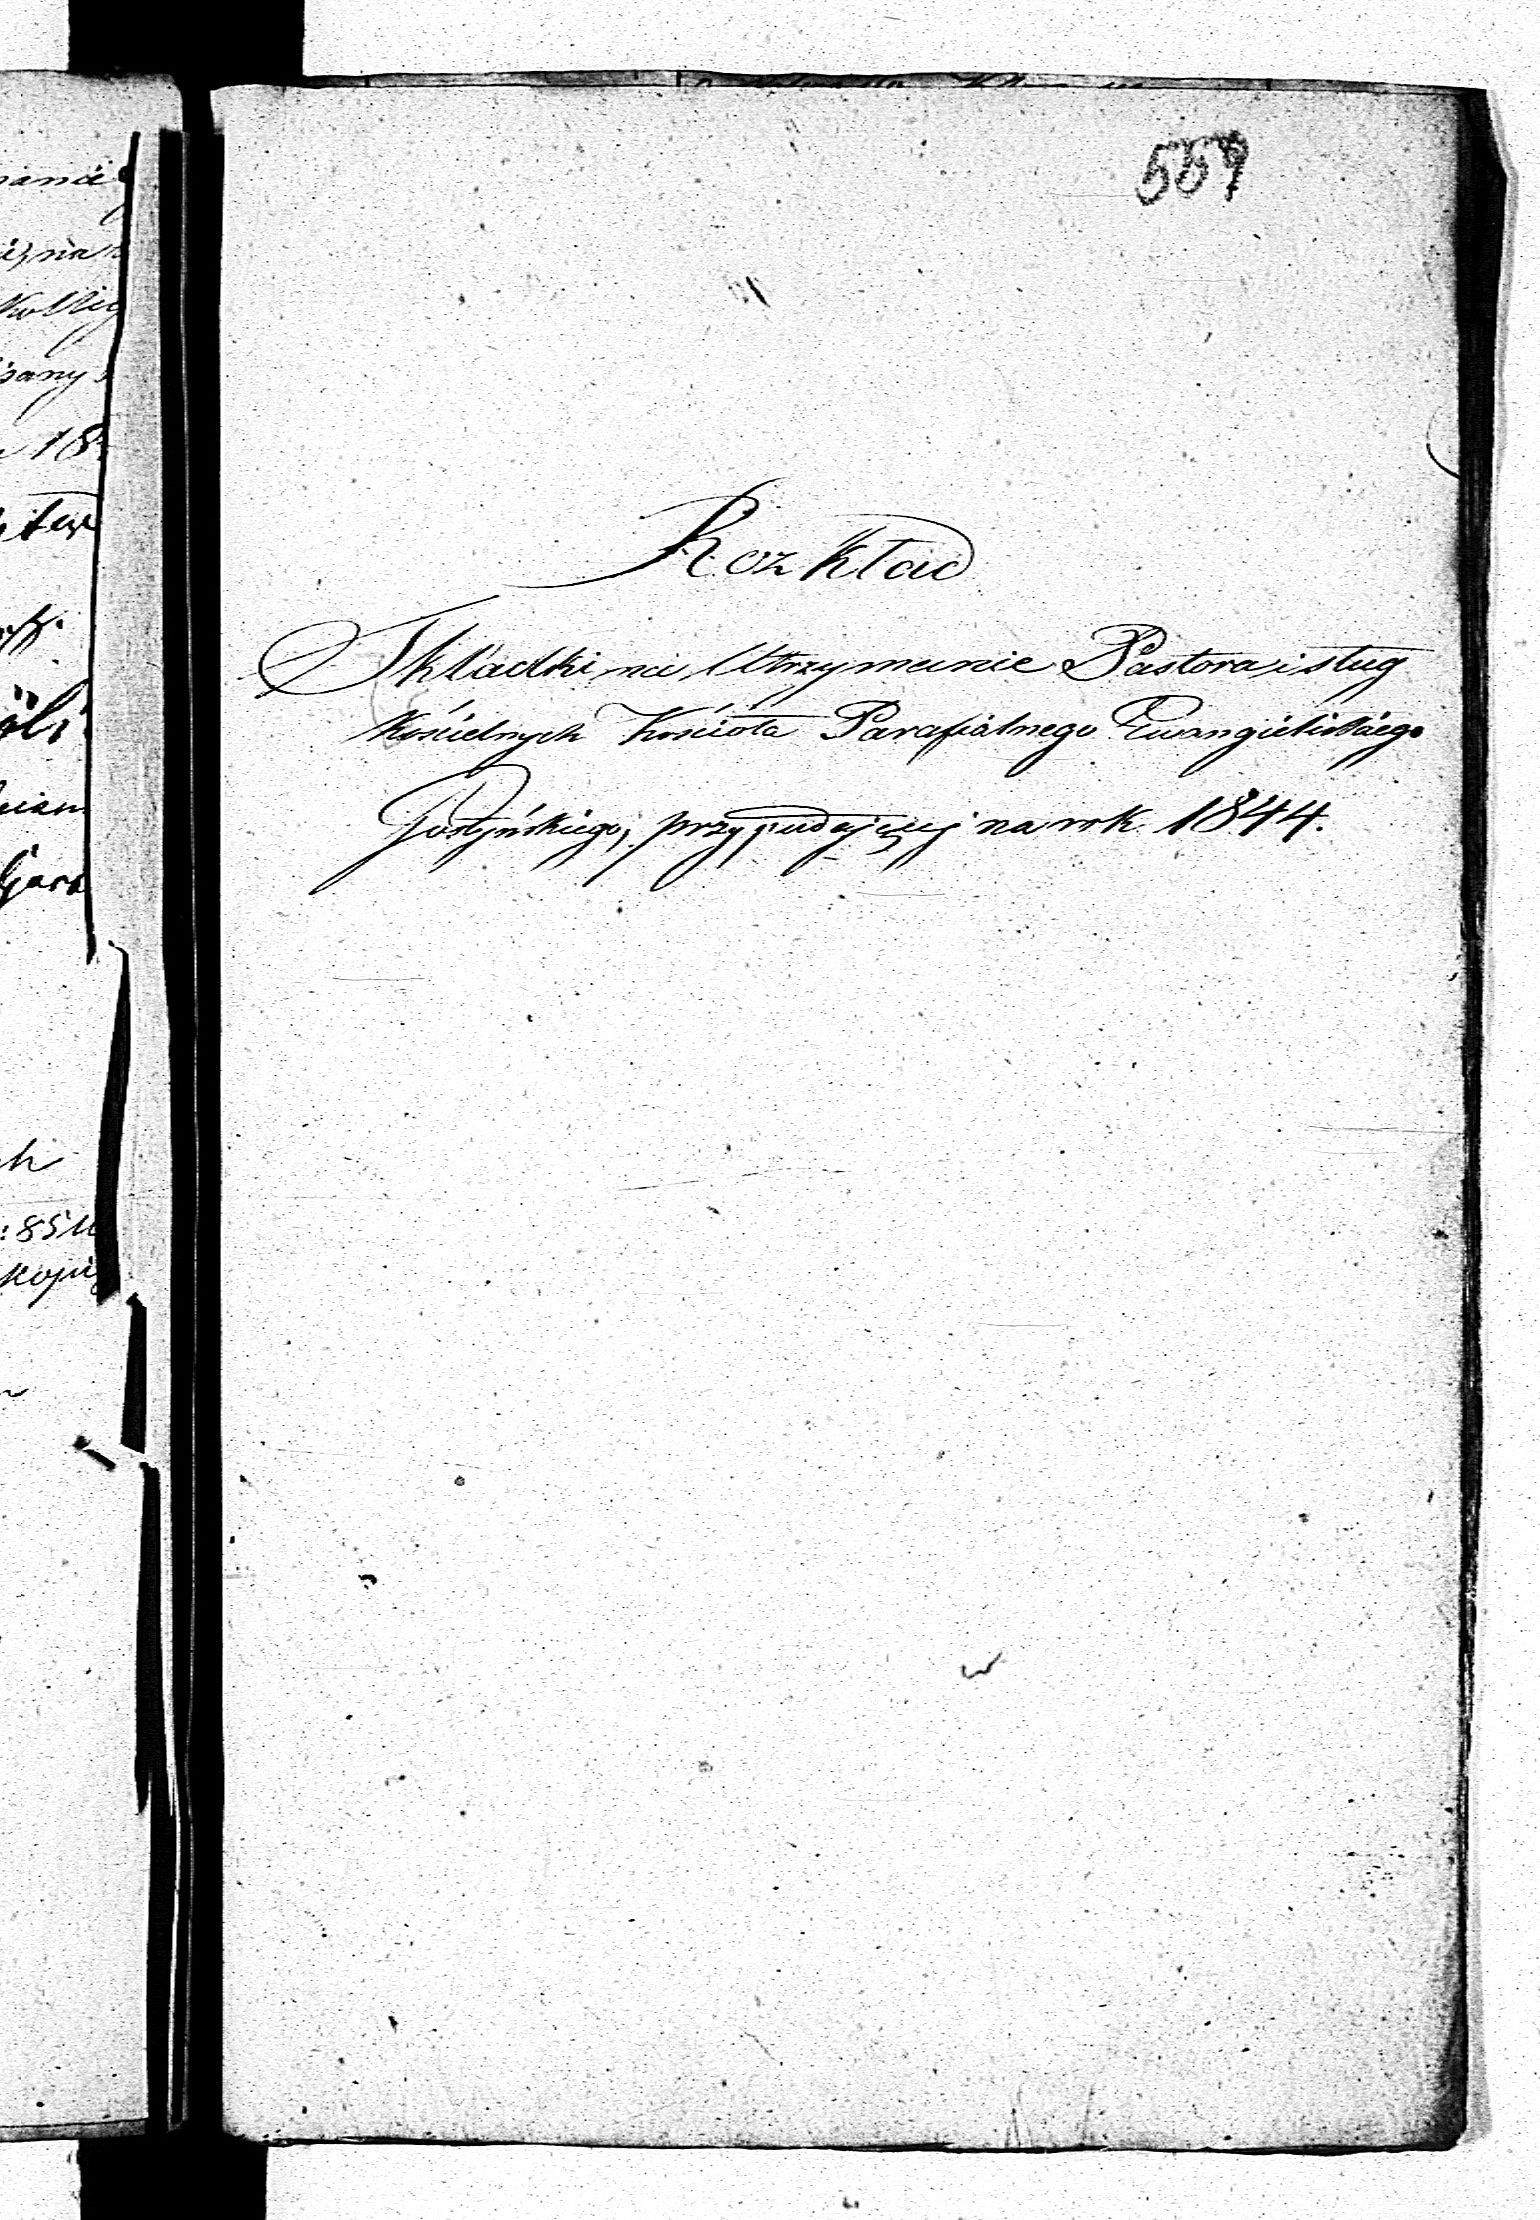 559
Rozkład
Składki na Utrzymanie Pastora i sług
Kościelnych Kościoła Parafialnego Ewangielickiego
Gostyńskiego, przypadającej na rok 1844.